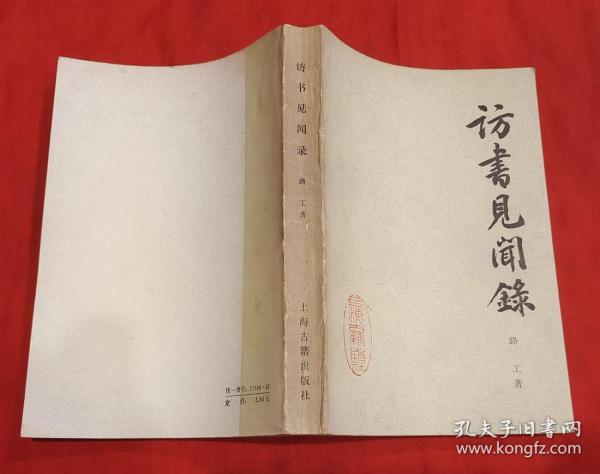 訪書見聞錄
路工著
访书见闻录
路工著
上海古籍出版社
统一书号：17186·42
定价：2.40元
孔夫子旧书网
www.kongfz.com